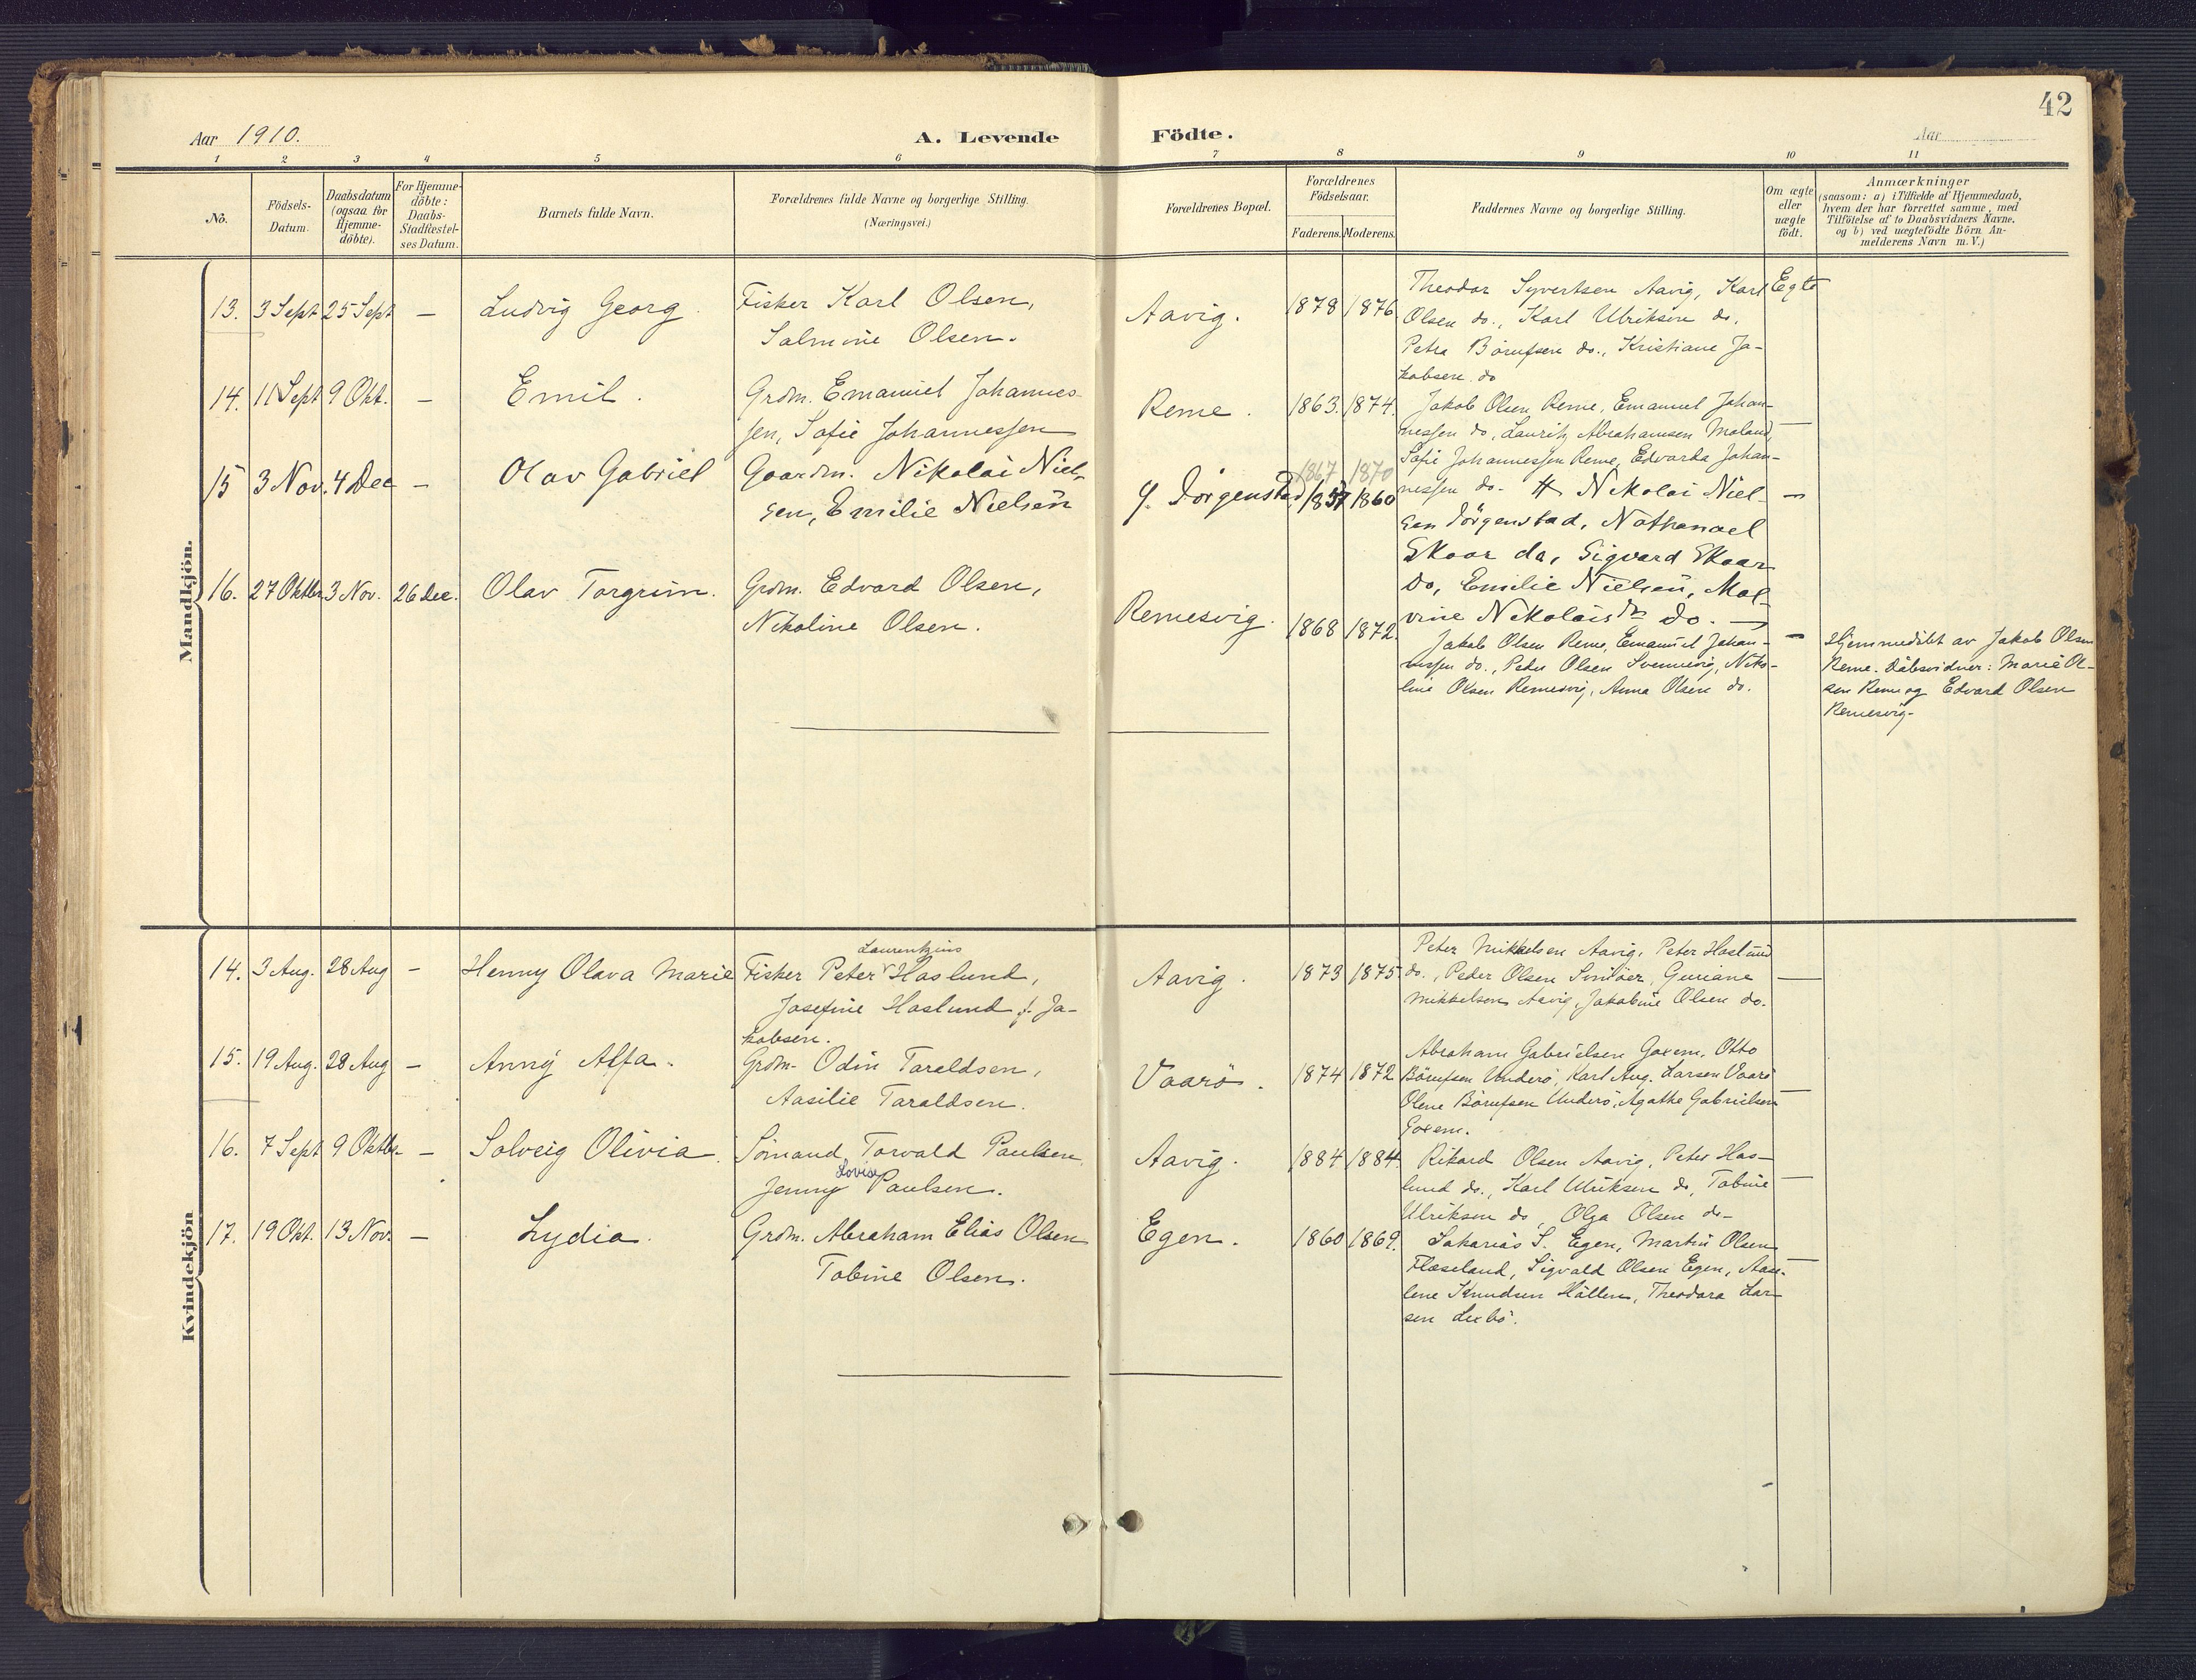 42
Aar 1910.
A. Levende
Födte.
Aar
1 2 3 4 5 6 7 8 9 10 11
No.
Födsels-
Datum.
Daabsdatum
(ogsaa for
Hjemme-
döbte).
For Hjemme-
döbte:
Daabs-
Stadfæstel-
ses Datum.
Barnets fulde Navn.
Forældrenes fulde Navne og borgerlige Stilling.
(Næringsvei.)
Forældrenes Bopæl.
Forældrenes
Födselsaar.
Faderens. Moderens.
Faddernes Navne og borgerlige Stilling.
Om ægte
eller
uægte
födt.
Anmærkninger
(saasom: a) i Tilfælde af Hjemmedaab,
hvem der har forrettet samme, med
Tilföielse af to Daabsvidners Navne.
og b) ved uægtefödte Börn An-
melderens Navn m. V.)
Mandkjön.
13. 3 Sept 25 Sept — Ludvig Georg.
Fisker Karl Olsen,
Salmine Olsen.
Aavig. 1878 1876
Theodor Syvertsen Aavig, Karl
Olsen do., Karl Ulriksen do.
Petra Börufsen do., Kristiane Ja-
kobsen do
Egte
14. 11 Sept 9 Okt. — Emil.
Grdm. Emanuel Johannes-
sen, Sofie Johannessen
Reme. 1863. 1874.
Jakob Olsen Reme, Emanuel Johan-
nessen do, Lauritz Abrahamsen Moland,
Sofie Johannessen Reme, Edvarda Johan-
nessen do.
—
15 3 Nov. 4 Dec — Olav Gabriel
Gaardm. Nikolai Niel-
sen, Emilie Nielsen
Y. Jörgenstad 1867 1870
1857 1860
Nikolai Niel-
sen Jörgenstad, Nathanael
Skoar do, Sigvard Skaar
do, Emilie Nielsen, Mal-
vine Nikolaisdr do.
—
16. 27 Oktbr 3 Nov. 26 Dec. Olav Torgrim.
Grdm. Edvard Olsen,
Nikoline Olsen.
Remesvig. 1868 1872
Jakob Olsen Reme, Emanuel Johan-
nessen do., Peder Olsen Svennevig, Niko-
line Olsen Remesvig, Anna Olsen do.
—
Hjemmedöbt av Jakob Olsen
Reme. Dåbsvidner: Marie Ol-
sen Reme og Edvard Olsen
Remesvig.
Kvindekjön
14. 3 Aug. 28 Aug — Henny Olava Marie
Laurentzius
Fisker Peter Haslund,
Josefine Haslund f. Ja-
kobsen.
Aavig. 1873 1875
Peter Mikkelsen Aavig, Peter Haslund
do., Peder Olsen, Guriane
Mikkelsen Aavig, Jakobine Olsen do.
—
15. 19 Aug. 28 Aug — Anny Alfa.
Grdm. Odin Taraldsen,
Aasilie Taraldsen.
Vaarö. 1874 1872
Abraham Gabrielsen Goxem, Otto
Börufsen Underö, Karl Aug. Larsen Vaarö
Olene Börufsen Underö, Agathe Gabrielsen
Goxem.
—
16. 7 Sept 9 Oktbr — Solveig Olivia.
Sömand Torvald Paulsen,
Lovise
Jenny Paulsen.
Aavig. 1884 1884.
Rikard Olsen Aavig, Peter Has-
lund do., Karl Ulriksen do, Tobine
Ulriksen do, Olga Olsen do-
—
17. 19 Okt. 13 Nov. — Lydia.
Grdm. Abraham Elias Olsen
Tobine Olsen.
Egen. 1860 1869.
Sakarias S. Egen, Martin Olsen
Flaseland, Sigvald Olsen Egen, Aase-
lene Knudsen Hållen, Theodora Lar-
sen Lexbö.
—